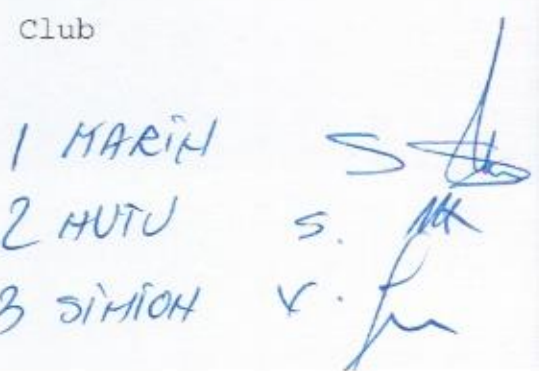 Club
1 MARiN S
2 HUTU S.
3 SiMiON V.